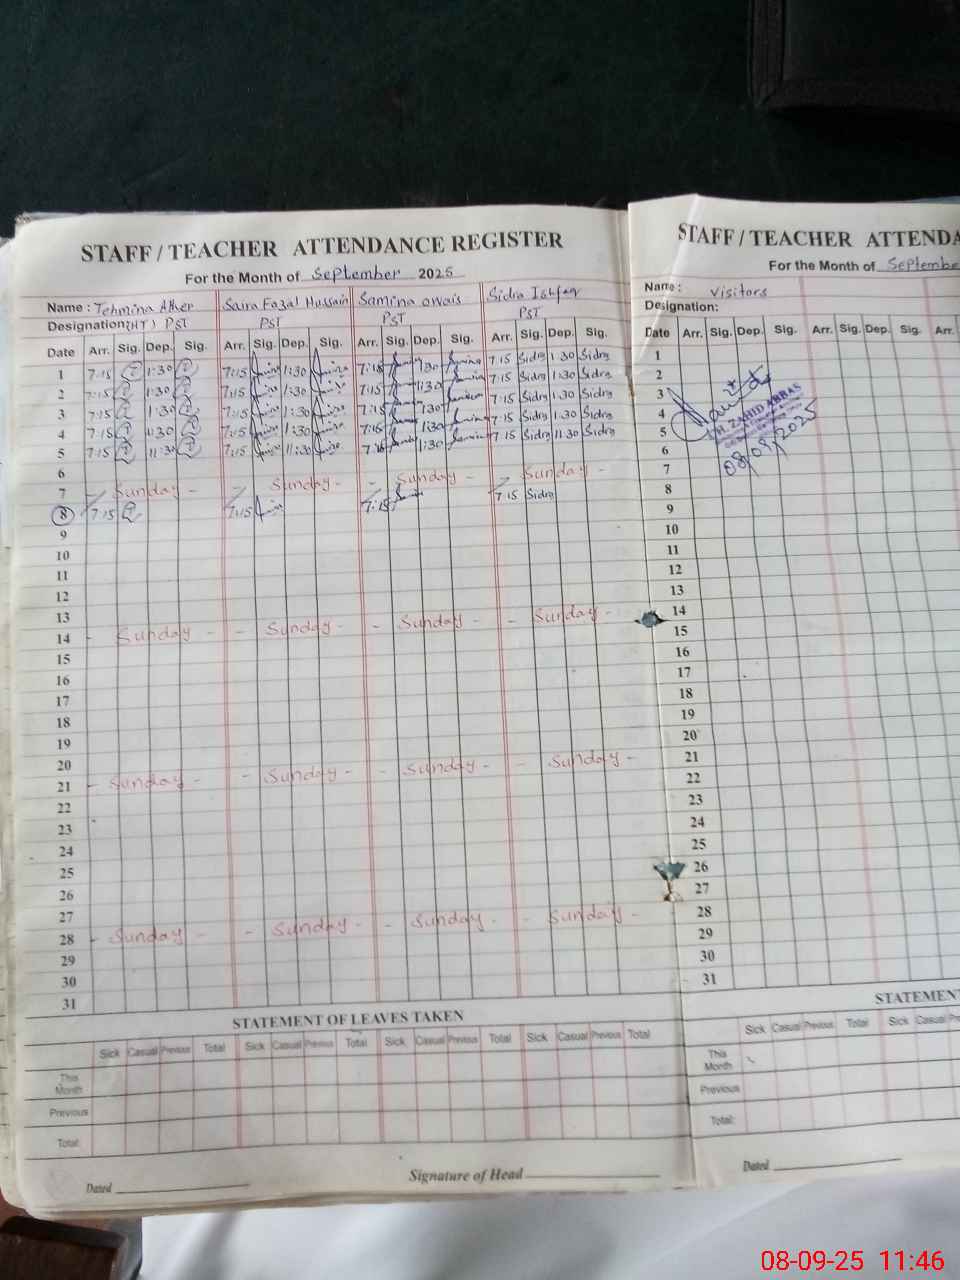 STAFF / TEACHER ATTENDANCE REGISTER
For the Month of September 2025
Name : Tehmina Ather Saira Fazal Hussain Samina owais Sidra Ishfaq
Designation (HT) PST PST PST PST
Date Arr. Sig. Dep. Sig. Arr. Sig. Dep. Sig. Arr. Sig. Dep. Sig. Arr. Sig. Dep. Sig.
1 7:15 1:30 7:15 1:30 7:15 1:30 7:15 Sidra 1:30 Sidra
2 7:15 1:30 7:15 1:30 7:15 1:30 7:15 Sidra 1:30 Sidra
3 7:15 1:30 7:15 1:30 7:15 1:30 7:15 Sidra 1:30 Sidra
4 7:15 1:30 7:15 1:30 7:15 1:30 7:15 Sidra 1:30 Sidra
5 7:15 11:30 7:15 11:30 7:15 1:30 7:15 Sidra 11:30 Sidra
6
7 - Sunday - - Sunday - - Sunday - - Sunday -
8 7:15 7:15 7:15 7:15 Sidra
9
10
11
12
13
14 - Sunday - - Sunday - - Sunday - - Sunday -
15
16
17
18
19
20
21 - Sunday - - Sunday - - Sunday - - Sunday -
22
23
24
25
26
27
28 - Sunday - - Sunday - - Sunday - - Sunday -
29
30
31
STATEMENT OF LEAVES TAKEN
Sick Casual Previous Total Sick Casual Previous Total Sick Casual Previous Total Sick Casual Previous Total
This Month
Previous
Total:
Dated Signature of Head
STAFF / TEACHER ATTENDA
For the Month of Septembe
Name : Visitors
Designation:
Date Arr. Sig. Dep. Sig. Arr. Sig. Dep. Sig. Arr.
1
2
3
4
5
6
7
8
9
10
11
12
13
14
15
16
17
18
19
20
21
22
23
24
25
26
27
28
29
30
31
ZAHID ABBAS
08/09/2025
STATEMENT
Sick Casual Previous Total Sick Casual Previous
This Month
Previous
Total:
Dated
08-09-25 11:46